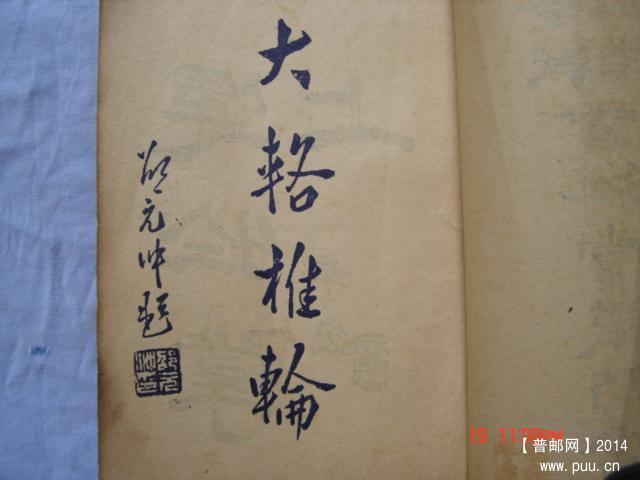 大輅椎輪
邵元冲題
19 11:00PM
【普邮网】2014
www.puu.cn